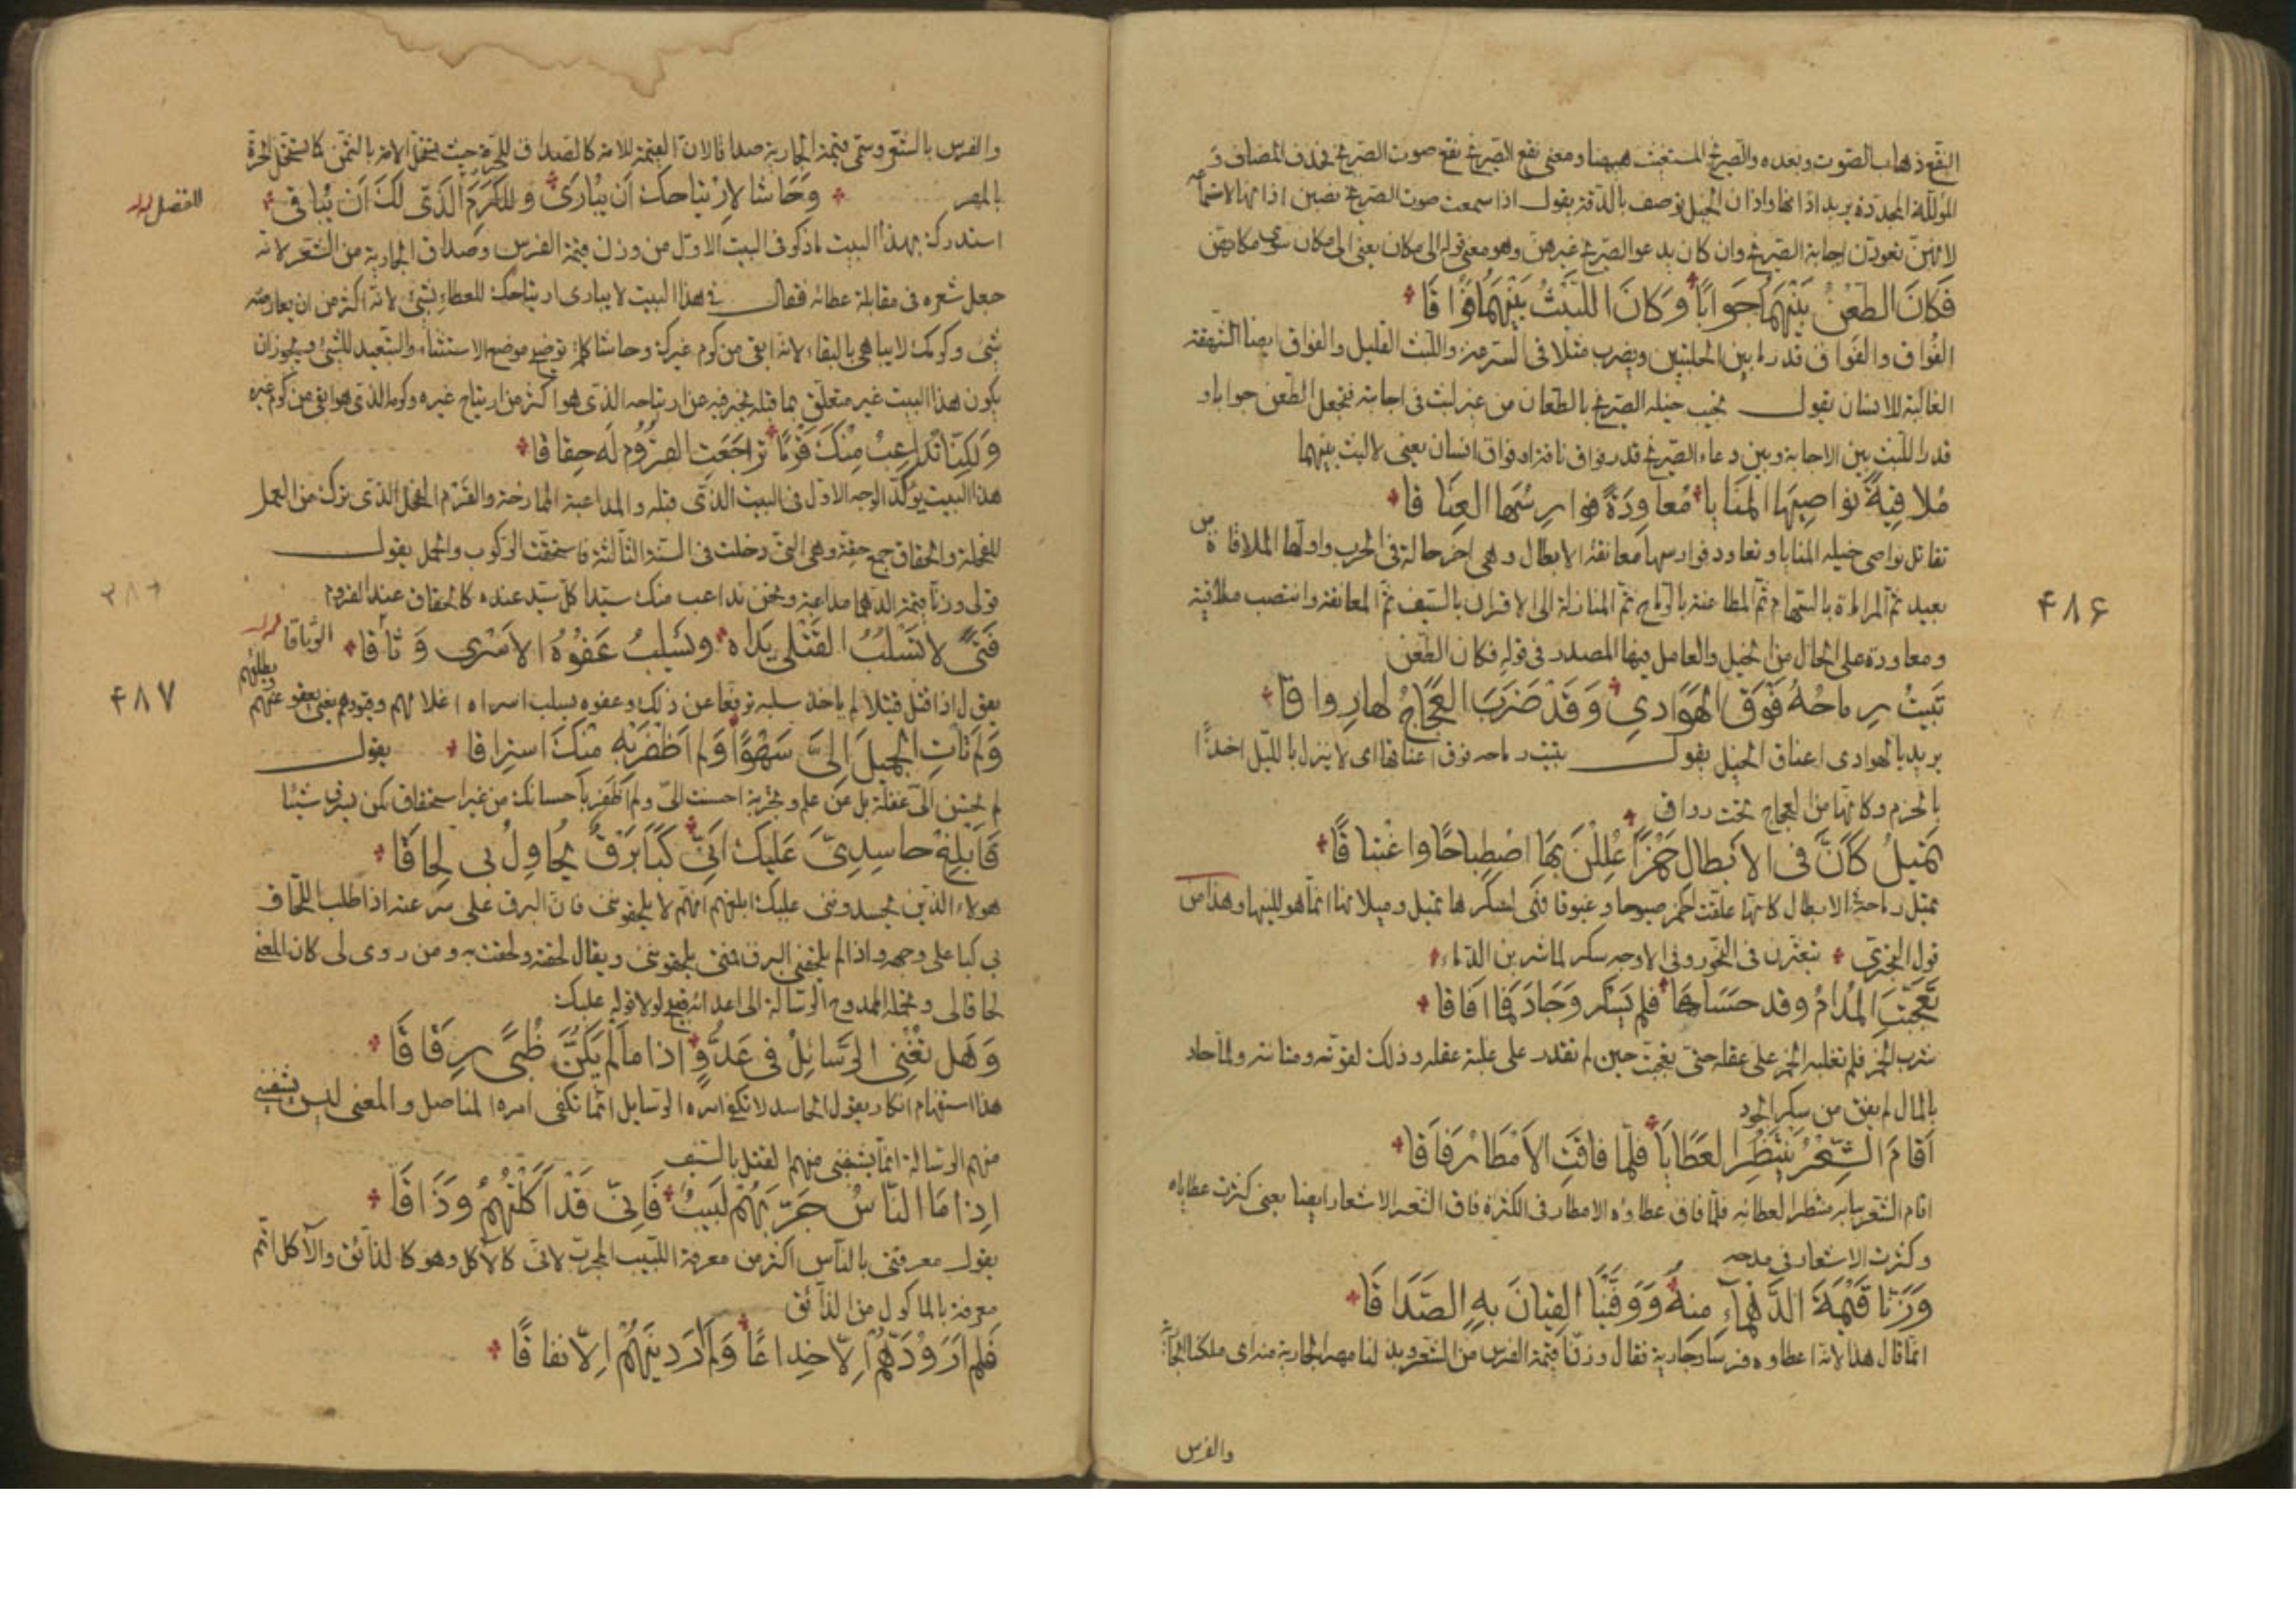 النقع ذهاب الصوت وبعده والصريخ المستغيث ههنا ومعنى نقع الصريخ نقع صوت الصريخ فحذف المضاف و
المؤللة المحددة يريد اذانها واذان الخيل توصف بالدقة يقول اذا سمعت صوت الصريخ نصبن اذانها لاستماعه
لانهن تعودن اجابة الصريخ وان كان يدعو الصريخ غيرهن وهو معنى قوله الى مكان يعنى الى مكان سوى مكانهن
فَكانَ الطَعْنُ بَيْنَهُما جَوَابًا وَكانَ اللَبْثُ بَيْنَهُما فُوَاقَا
الفُواق والفَواق قدر ما بين الحلبتين ويضرب مثلا فى السرعة واللبث القليل والفواق ايضا الشهقة
الغالبة للانسان يقول تجيب خيله الصريخ بالطعان من غير لبث فى اجابته فتجعل الطعن جوابا و
قدر اللبث بين الاجابة وبين دعاء الصريخ قدر فواق ناقة او فواق انسان يعنى لا لبث بينهما
مُلاقِيَةً نواصِيهَا المَنَايا مُعاوِدَةً فوارِسُهَا العِنَاقا
تقابل نواصى خيله المنايا وتعاود فوارسها معانقة الابطال وهى اخر حالة فى الحرب واولها الملاقاة من
بعيد ثم المراماة بالسهام ثم المطاعنة بالرماح ثم المنازلة الى الاقران بالسيف ثم المعانقة وانتصب ملاقية
ومعاودة على الحال من الخيل والعامل فيها المصدر فى قوله فكان الطعن
٤٨٦
تَبيتُ رِماحُهُ فَوْقَ الهَوَادِي وَقَدْ ضَرَبَ العَجَاجُ لها رِواقا
يريد بالهوادى اعناق الخيل يقول تبيت رماحه فوق اعناقها اى لا ينزل بالليل اخذًا
بالحزم وكانها من العجاج تحت رواق
تَميلُ كَأنَّ فى الابطالِ خَمْرًا عُلِلْنَ بِهَا اصْطِباحًا واغْتِباقًا
تميل رماحه فى الابطال كانها علقت الخمر صبوحا وغبوقا فهى لسكرها تميل وميلانها انما هو للينها وهذا من
قول البحترى يتعثرن فى النحور وفى الاوجه سكرا لما شربن الدماء
تَعَجَّبَتِ المُدامُ وقد حَسَاها فلم يَسْكَر وَجَادَ فما افَاقا
شرب الخمر فلم تغلبه الخمر على عقله حتى تعجبت حين لم تقدر على غلبة عقله وذلك لقوته ومتانته ولما جاد
بالمال لم يفق من سكر الجود
اَقامَ الشِّعْرُ يَنْتَظِرُ العَطَايَا فَلمّا فاقَتِ الامْطارَ فَاقا
اقام الشعر ببابه منتظرا لعطائه فلما فاق عطاؤه الامطار فى الكثرة فاق الشعر الاشعار ايضا يعنى كثرت عطاياه
وكثرت الاشعار فى مدحه
وَزَنّا قيمَةَ الدَّهْمَاءِ مِنهُ وَوَفَّيْنَا القِيانَ بِهِ الصَدَاقَا
انما قال هذا لانه اعطاه فرسا وجارية فقال وزنّا قيمة الفرس من الشعر وبذلنا مهر الجارية منه اى ملكنا الجارية
والفرس
والفرس بالشعر وسمى قيمة الجارية صداقا لان القيمة للامة كالصداق للحرة حيث يستحل الامة بالثمن كما يستحل الحرة
بالمهر وَحَاشا لِارْتِياحِكَ اَن يُبارَى وللكَرَمِ الَّذى لَكَ اَن يُباقى
للفضل
استدرك بهذا البيت ما ذكره فى البيت الاول من وزن قيمة الفرس وصداق الجارية من الشعر لانه
جعل شعره فى مقابلة عطائه فقال فى هذا البيت لا يبارى ارتياحك للعطاء بشىء لانه اكثر من ان يعارضه
شىء وكرمك لا يباهى بالبقاء لانه ابقى من كرم غيرك وحاشا كلمة توضع موضع الاستثناء والتبعيد للشىء ويجوز ان
يكون هذا البيت غير متعلق بما قبله يخبر فيه عن ارتياحه الذى هو اكثر من ارتياح غيره وكرمه الذى هو ابقى من كرم غيره
وَلكِنّا نُداعِبُ مِنْكَ قَرْمًا تَراجَعَتِ القُرُومُ لَه حِقاقا
هذا البيت يؤكد الوجه الاول فى البيت الذى قبله والمداعبة الممازحة والقرم الفحل الذى يترك من العمل
للفحلة والحقاق جمع حقة وهى التى دخلت فى السنة الثالثة فاستحقت الركوب والحمل يقول
قولى وزنّا قيمة الدهماء مداعبة ونحن نداعب منك سيدا كل سيد عنده كالحقاق عند القروم
فَتىً لا تَسْلُبُ القَتْلى يَدَاه وَيَسْلِبُ عَفْوُهُ الاَسْرى وَثاقا
الوثاقا
٤٨٧
يقول اذا قتل قتيلا لم ياخذ سلبه ترفعا عن ذلك وعفوه يسلب اسراه اغلالهم وقيودهم يعنى يعفو عنهم
ويطلقهم
وَلم تَأتِ الجَميلَ اِليَّ سَهْوًا وَلم اَظْفَرْ بِهِ مِنْكَ اسْتِراقا يقول
لم تحسن الىّ غفلة بل عن علم وتجربة احسنت الىّ ولم اظفر باحسانك من غير استحقاق كمن يسرق شيئا
فَاَبْلِغْ حاسِدِيَّ عَلَيكَ اَنّى كَبَا بَرْقٌ يُحاوِلُ بى لِحاقَا
هولاء الذين يحسدوننى عليك ابلغهم انهم لا يلحقوننى فان البرق على سرعته اذا طلب اللحاق
بى كبا على وجهه واذا لم يلحقنى البرق فمتى يلحقوننى ويقال لحقته ولحقت به ومن روى لى كان المعنى
لحاقا لى وتحمله الممدوح الرسالة الى اعدائه قبيح لولا قوله عليك
وَهَل تُغْنى الرسَائِلُ فى عَدُوٍّ اذا ما لم يَكُنَّ ظُبىً رِقَاقَا
هذا استفهام انكار يقول الحاسد لا تكفى امره الرسايل انما تكفى امره المناصل والمعنى ليس يشفينى
منهم الرسالة انما يشفينى منهم القتل بالسيف
اِذا مَا النّاسُ جَرَّبَهُمْ لَبيبٌ فَاِنّى قَدْ اَكَلْتُهُمُ وَذَاقَا
يقول معرفتى بالناس اكثر من معرفة اللبيب المجرب لانى كالآكل وهو كالذائق والآكل اتم
معرفة بالماكول من الذائق
فَلم اَرَ وُدَّهُمْ اِلّا خِداعًا وَلم اَرَ دينَهُمْ اِلّا نفاقًا